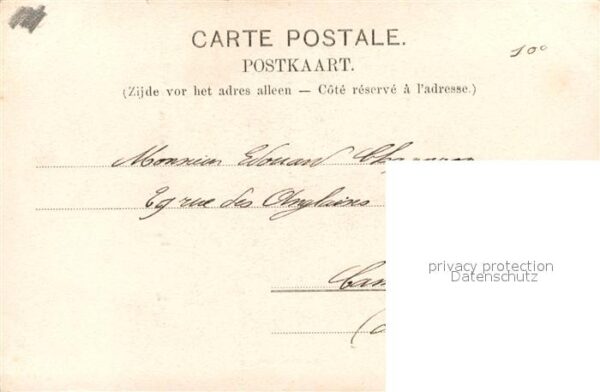 CARTE POSTALE.
100
POSTKAART.
(Zijde vor het adres alleen — Côté réservé à l'adresse.)
Monsieur Edouard
rue des Anglaises
privacy protection
Datenschutz